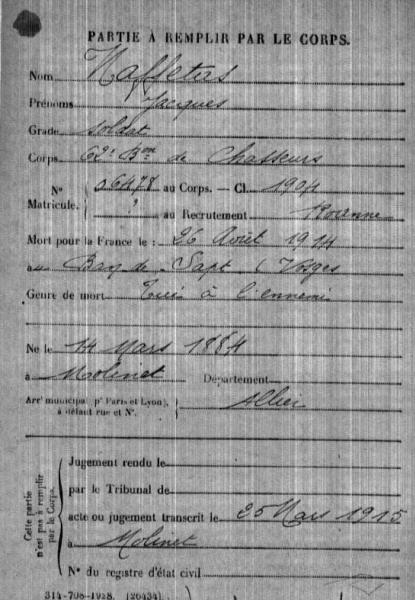 PARTIE À REMPLIR PAR LE CORPS.
Nom Naffetas
Prénoms Jacques
Grade soldat
Corps 62e Bon de Chasseurs
N° 06478 au Corps. — Cl. 1904
Matricule. ? au Recrutement Roanne
Mort pour la France le : 26 Août 1914
à au Ban de Sapt (Vosges
Genre de mort Tué à l'ennemi
Né le 14 Mars 1884
à Molinet Département
Arrt municipal (pr Paris et Lyon), à défaut rue et N°. Allier
Cette partie n'est pas à remplir par le Corps.
Jugement rendu le
par le Tribunal de
acte ou jugement transcrit le 25 Mars 1915
à Molinet
N° du registre d'état civil
314-708-1928. (26434)